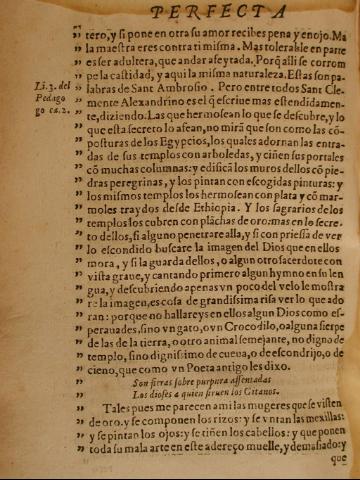 PERFECTA
tero, y si pone en otra su amor recibes pena y enojo. Ma
la maestra eres contra ti misma. Mas tolerable en parte
es ser adultera, que andar afeytada. Porq̃ alli se corrom
pe la castidad, y aqui la misma naturaleza. Estas son pa
labras de Sant Ambrosio. Pero entre todos Sant Cle-
Li. 3. del
Pedago
go ca. 2.
mente Alexandrino es el q̃ escriue mas estendidamen-
te, diziendo. Las que hermosean lo que se descubre, y lo
que esta secreto lo afean, no mirã que son como las cõ-
posturas de los Egypcios, los quales adornan las entra-
das de sus templos con arboledas, y ciñen sus portales
cõ muchas columnas: y edificã los muros dellos cõ pie
dras peregrinas, y los pintan con escogidas pinturas: y
los mismos templos los hermosean con plata y cõ mar-
moles traydos desde Ethiopia. Y los sagrarios de los
templos los cubren con plãchas de oro: mas en lo secre
to dellos, si alguno penetrare alla, y si con priessa de ver
lo escondido buscare la imagen del Dios que en ellos
mora, y si la guarda dellos, o algun otro sacerdote con
vista graue, y cantando primero algun hymno en su len
gua, y descubriendo apenas vn poco del velo le mostra
re la imagen, es cosa de grandissima risa ver lo que ado
ran: porque no hallareys en ellos algun Dios como es-
perauades, sino vn gato, o vn Crocodilo, o alguna sierpe
de las de la tierra, o otro animal semejante, no digno de
templo, sino dignissimo de cueua, o de escondrijo, o de
cieno, que como vn Poeta antigo les dixo.
Son fieras sobre purpura assentadas
Los dioses a quien siruen los Gitanos.
Tales pues me parecen a mi las mugeres que se visten
de oro, y se componen los rizos: y se vntan las mexillas:
y se pintan los ojos: y se tiñen los cabellos: y que ponen
toda su mala arte en este adereço muelle, y demasiado: y
que